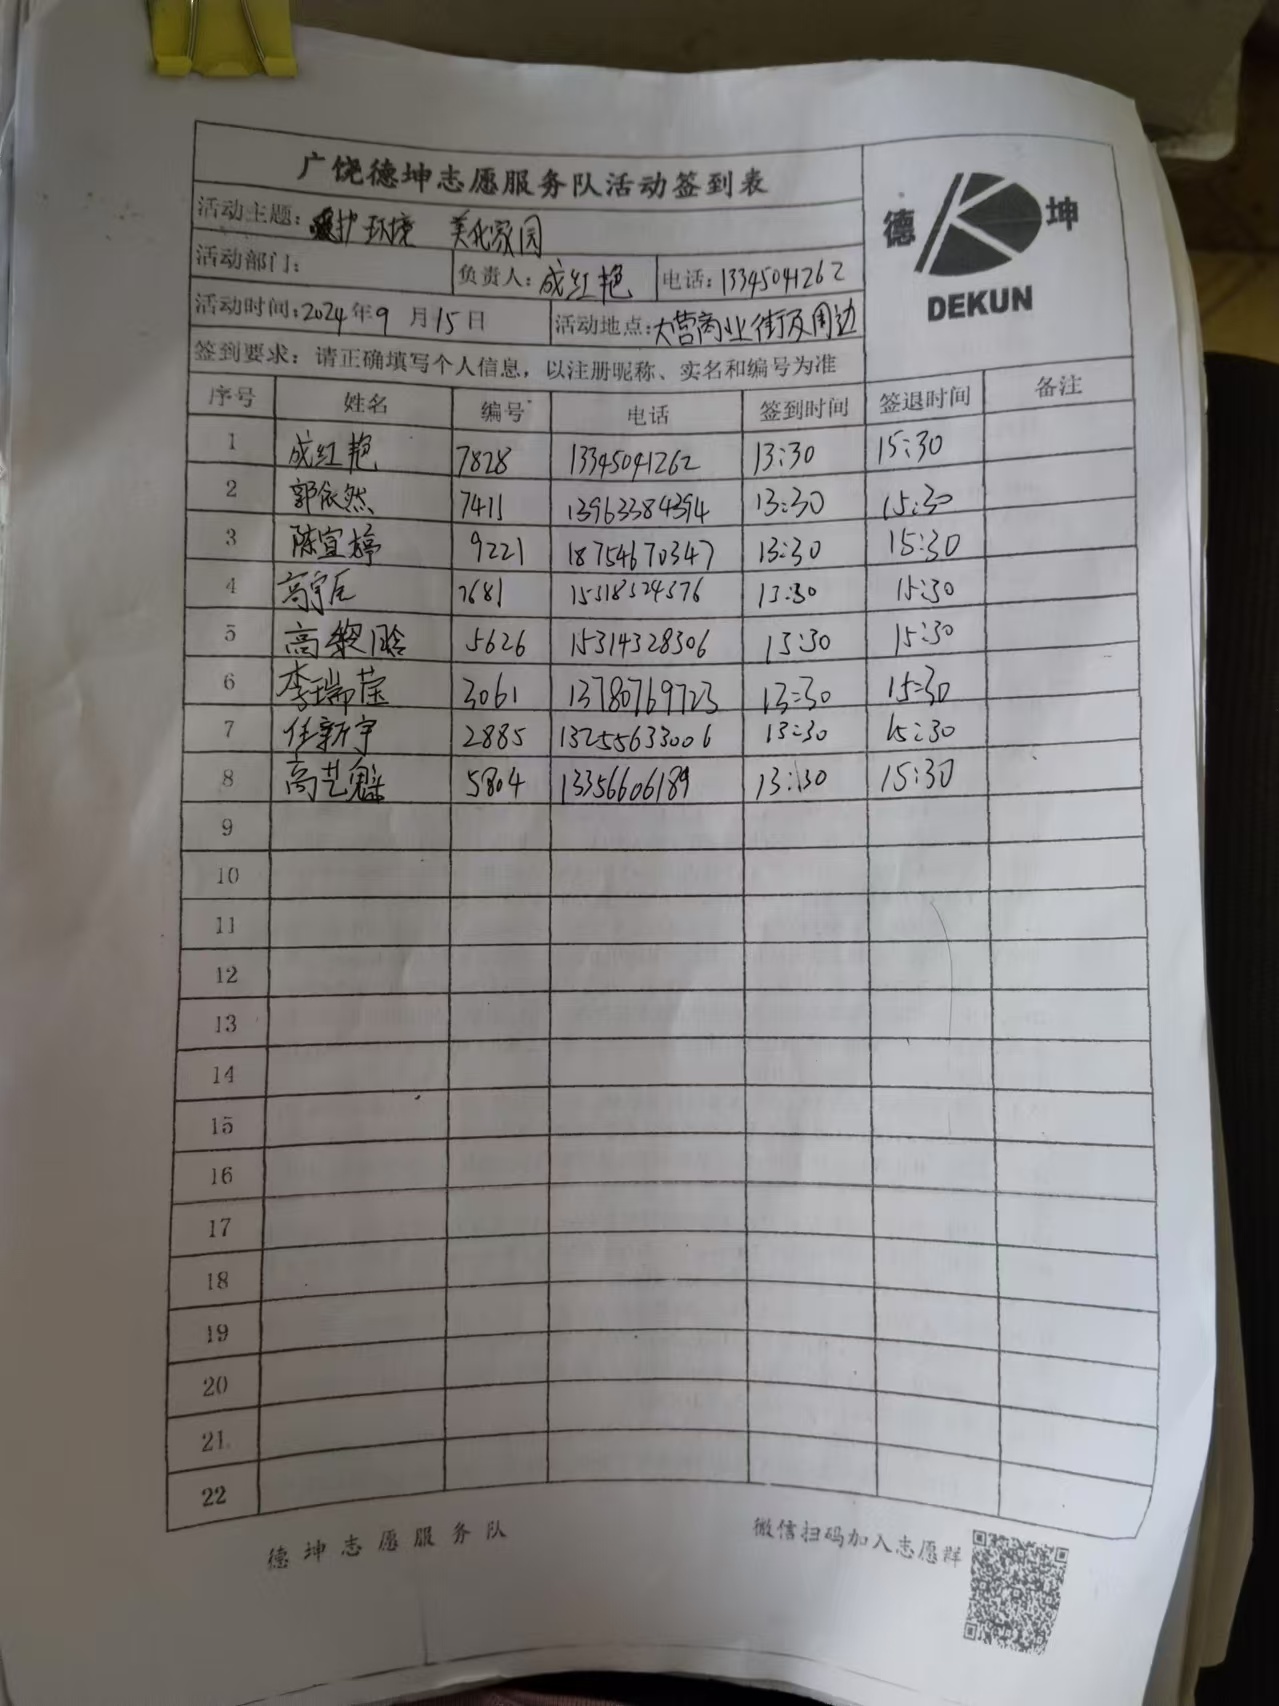 广饶德坤志愿服务队活动签到表
德 坤
DEKUN
活动主题：爱护环境 美化家园
活动部门： 负责人：成红艳 电话：13345041262
活动时间：2024年9月15日 活动地点：大营商业街及周边
签到要求：请正确填写个人信息，以注册昵称、实名和编号为准
序号 姓名 编号 电话 签到时间 签退时间 备注
1 成红艳 7828 13345041262 13:30 15:30
2 郭依然 7411 13963384394 13:30 15:30
3 陈宜婷 9221 18754670347 13:30 15:30
4 高宇 7681 13:30 15:30
5 高黎晗 5626 15314328306 13:30 15:30
6 李瑞莹 3061 13780769723 13:30 15:30
7 任新宇 2885 13255633006 13:30 15:30
8 高艺魁 5804 13356606189 13:30 15:30
9
10
11
12
13
14
15
16
17
18
19
20
21
22
德坤志愿服务队 微信扫码加入志愿群